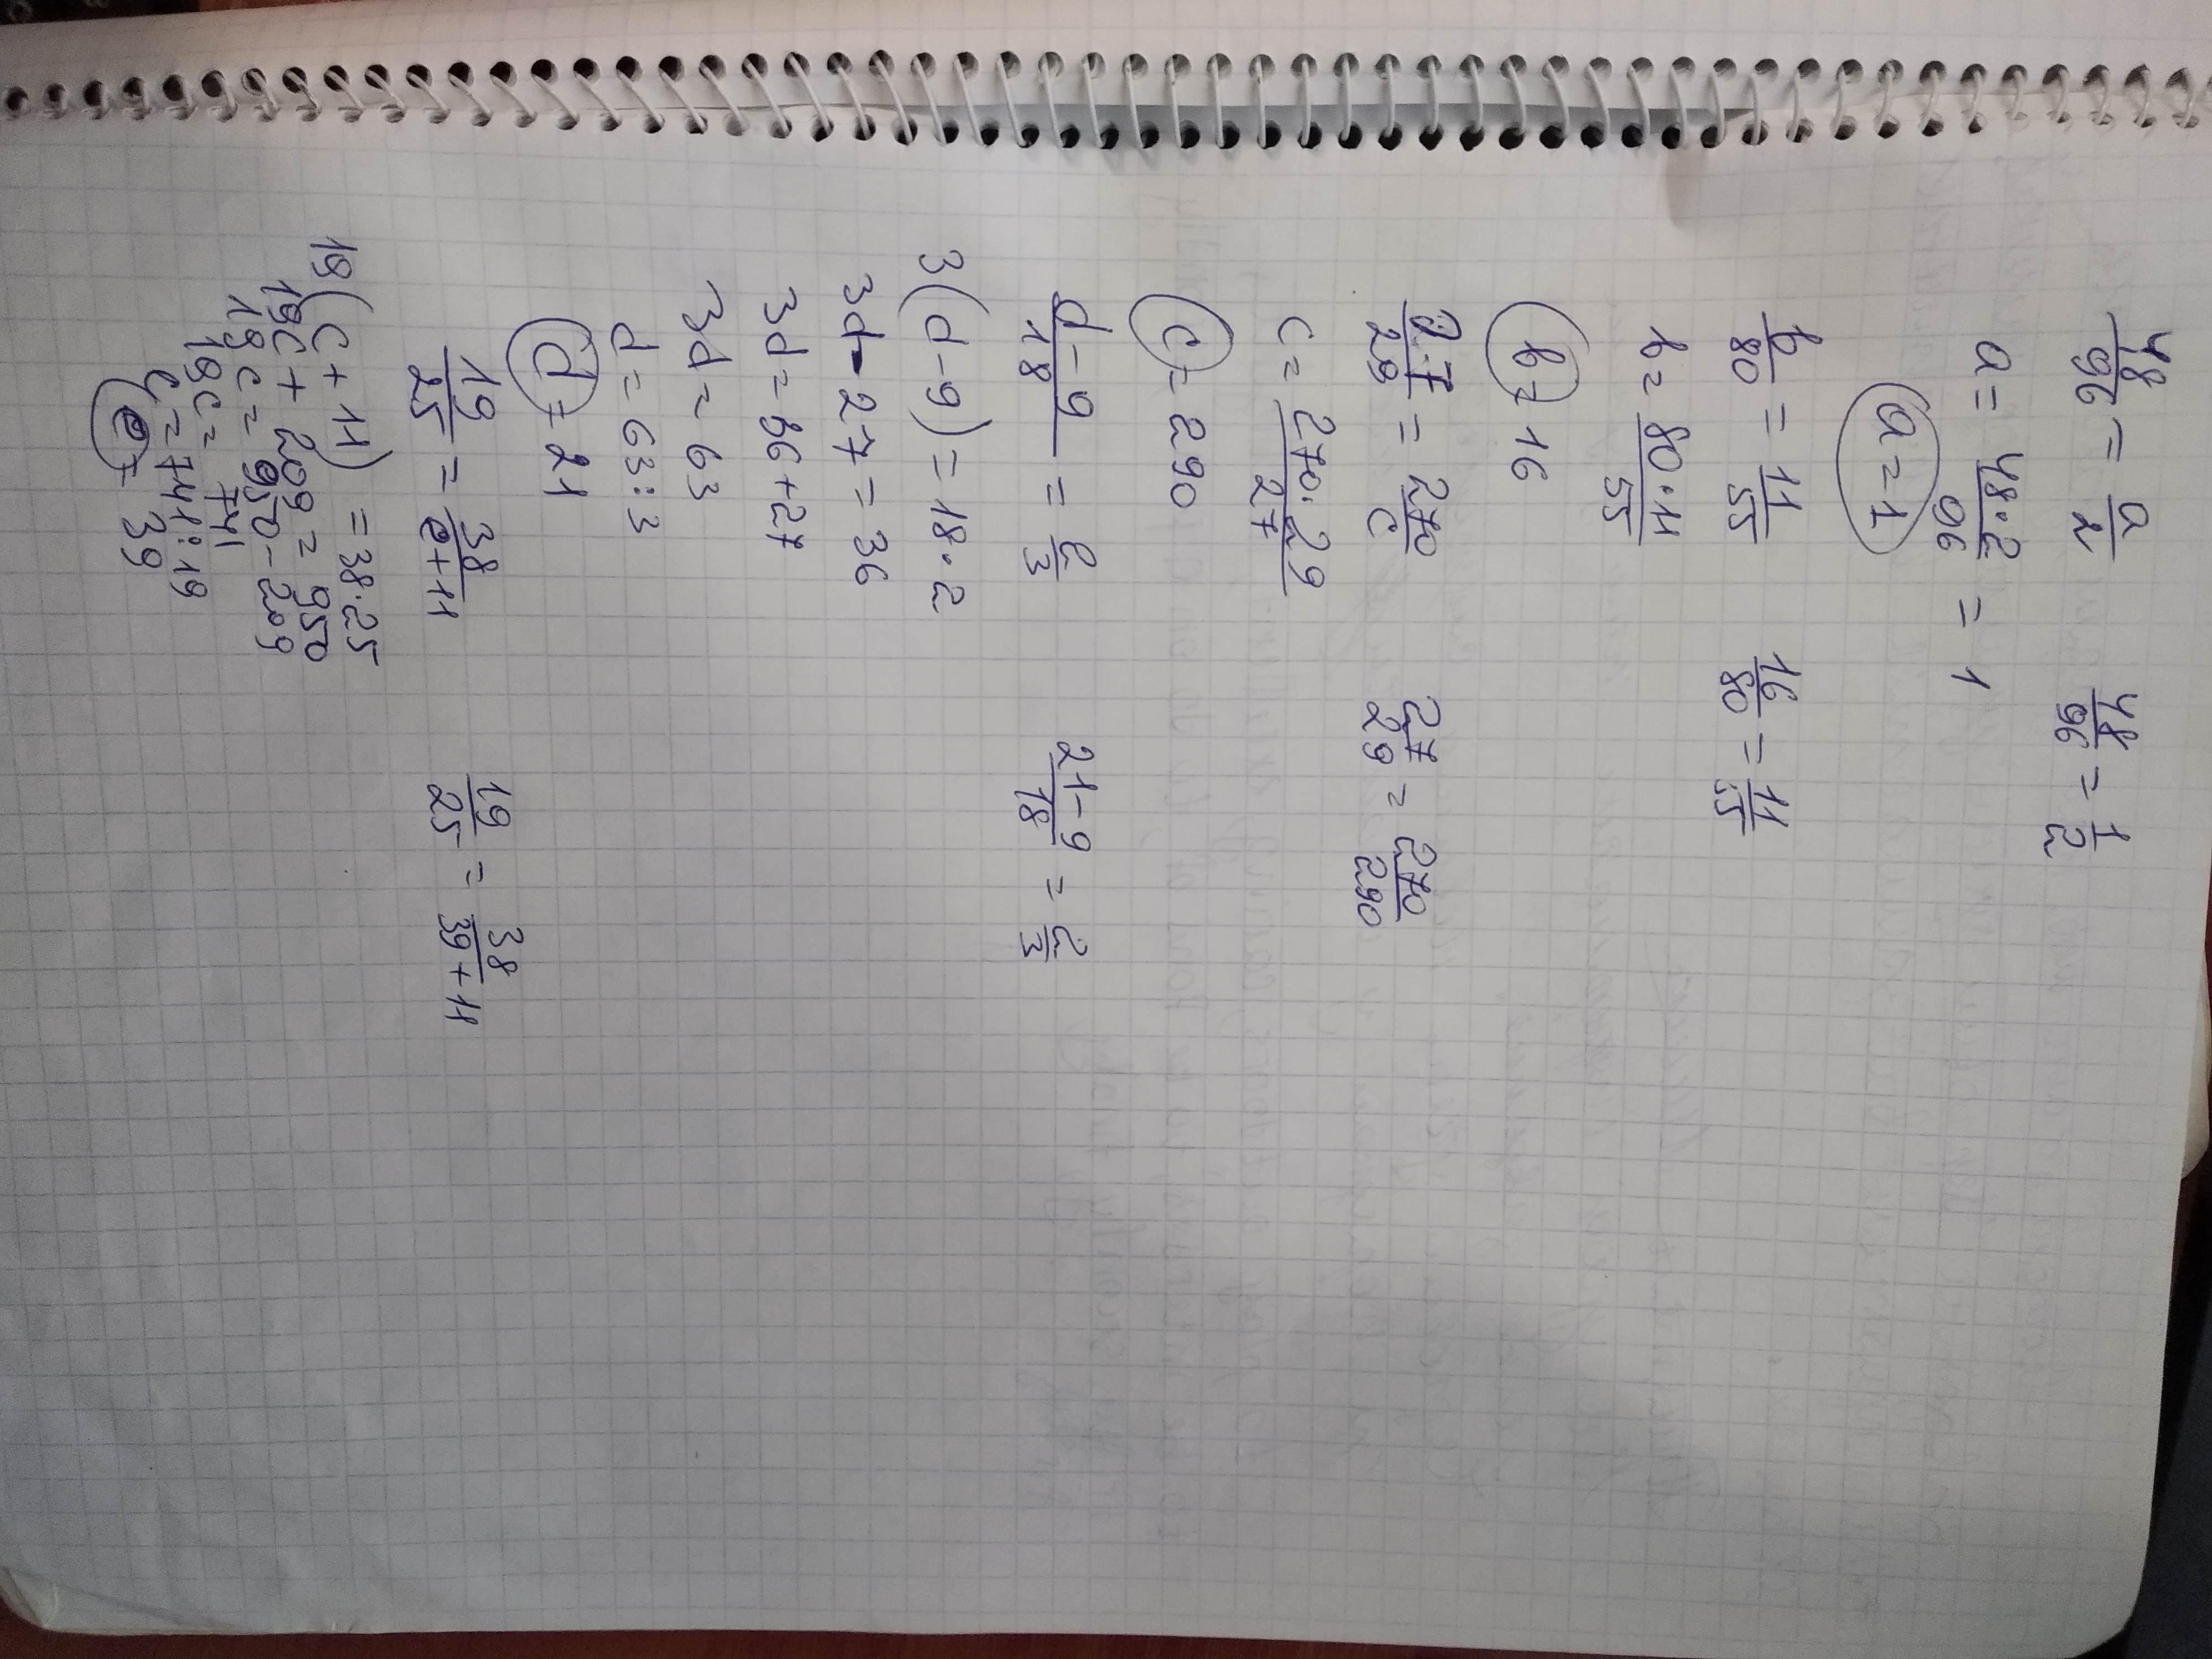 48/96 = a/2   48/96 = 1/2
a = 48·2/96 = 1
a = 1
b/80 = 11/55   16/80 = 11/55
b = 80·11/55
b = 16
27/29 = 270/c   27/29 = 270/290
c = 270·29/27
c = 290
d-9/18 = 2/3   21-9/18 = 2/3
3(d-9) = 18·2
3d-27 = 36
3d = 36+27
3d = 63
d = 63:3
d = 21
19/25 = 38/e+11   19/25 = 38/39+11
19(c+11) = 38·25
19c + 209 = 950
19c = 950-209
19c = 741
c = 741:19
e = 39